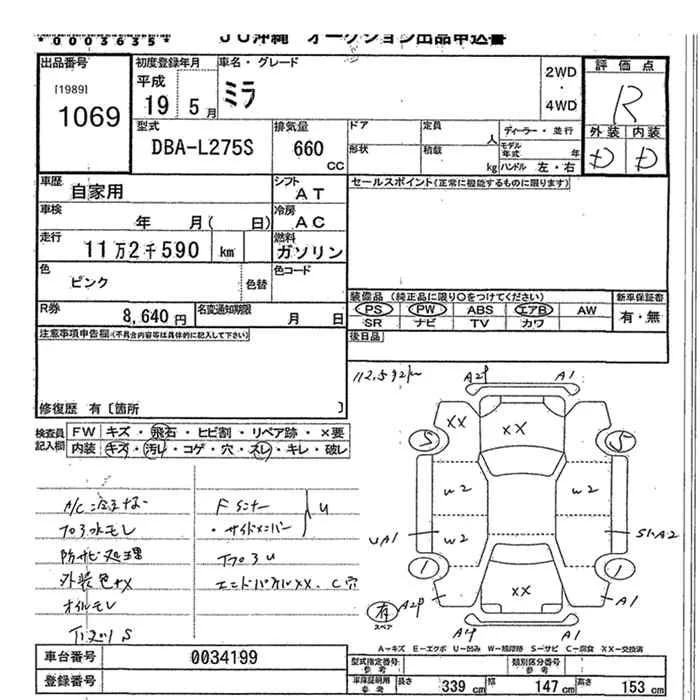 *0003635* JU沖縄 オークション出品申込書
出品番号
[1989]
1069
初度登録年月
平成
19 5月
車名・グレード
ミラ
2WD
・
4WD
評価点
R
外装 内装
D D
型式
DBA-L275S
排気量
660
CC
ドア 定員 人
形状 積載 kg
ディーラー・並行
モデル年式 年
ハンドル 左・右
車歴
自家用
シフト
AT
セールスポイント(正常に機能するものに限ります)
車検
年 月( 日)
冷房
AC
走行
11万2千590 km
燃料
ガソリン
色
ピンク
色替
色コード
R券
8,640円
名変通知期限
月 日
装備品 (純正品に限り○をつけてください)
PS PW ABS エアB AW
SR ナビ TV カワ
新車保証書
有・無
後日品
注意事項申告欄(不具合内容等は具体的に記入して下さい)
修復歴 有〔箇所 〕
検査員記入欄
FW キズ・飛石・ヒビ割・リペア跡・×要
内装 キズ・汚レ・コゲ・穴・スレ・キレ・破レ
112,592km
A2P A1
XX XX
S S
W2 W2
UA1 W2 S1.A2
1 1
XX
有 スペア A2P A1
A1
A/C
防サビ処理
外装色
オイルモレ
S
F
U
・サイドメンバー
XX、C穴
A―キズ E―エクボ U―凹み W―補修跡 S―サビ C―腐食 XX―交換済
車台番号 0034199
登録番号
型式指定番号
参考
類別区分番号
参考
車庫証明用
参考
長さ 339cm 幅 147cm 高さ 153cm